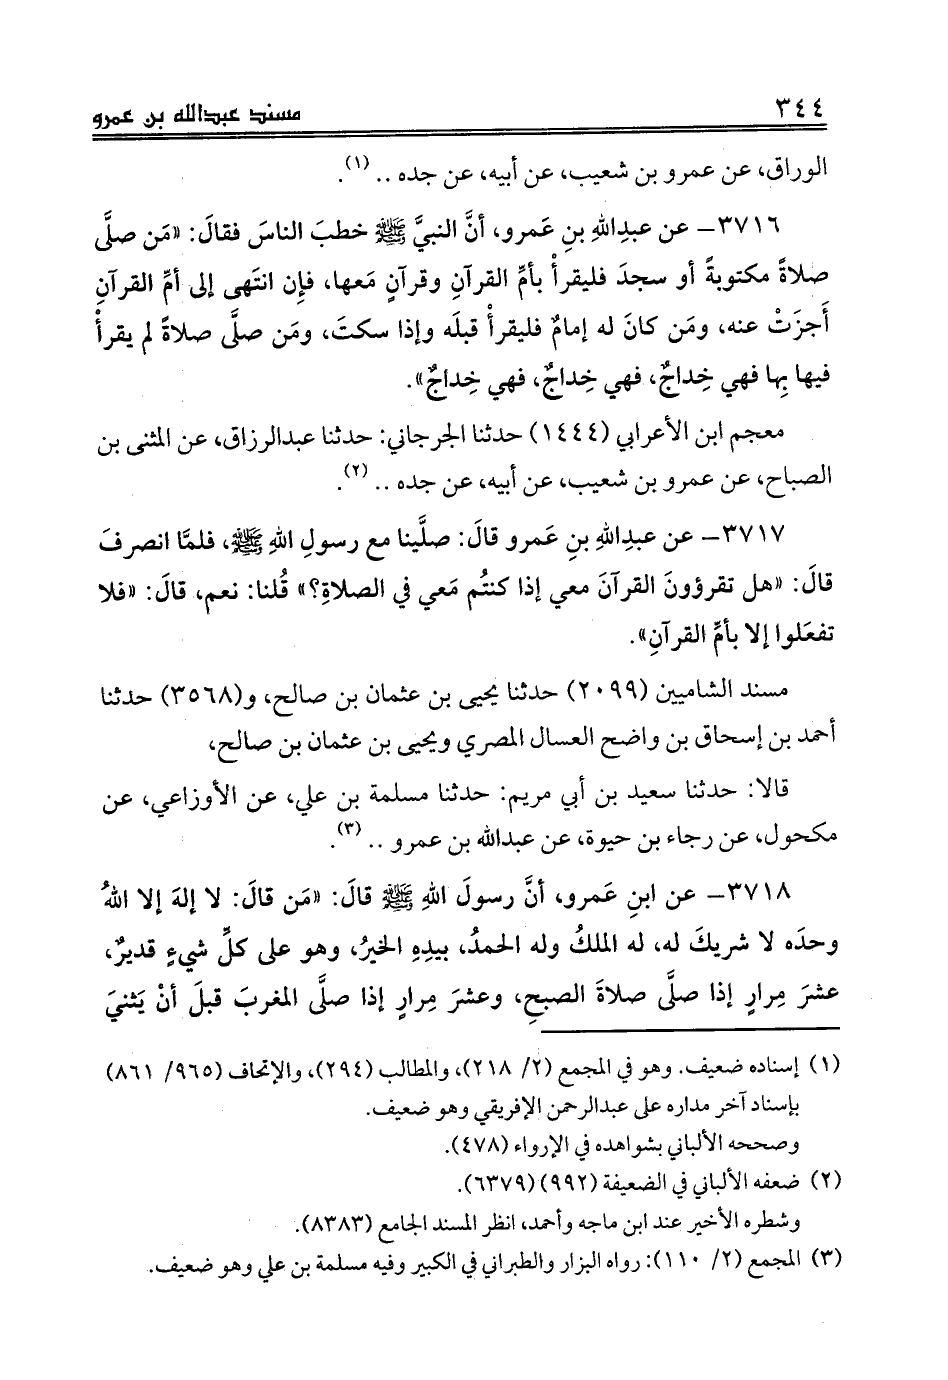 ٣٤٤ مسند عبدالله بن عمرو
الوراق، عن عمرو بن شعيب، عن أبيه، عن جده .. (١).
٣٧١٦- عن عبدِاللهِ بنِ عَمرو، أنَّ النبيَّ ﷺ خطبَ الناسَ فقالَ: «مَن صلَّى
صلاةً مكتوبةً أو سجدَ فليقرأْ بأمِّ القرآنِ وقرآنٍ مَعها، فإِن انتَهى إلى أمِّ القرآنِ
أَجزَتْ عنه، ومَن كانَ له إمامٌ فليقرأْ قبلَه وإذا سكتَ، ومَن صلَّى صلاةً لم يقرأْ
فيها بِها فهي خِداجٌ، فهي خِداجٌ، فهي خِداجٌ».
معجم ابن الأعرابي (١٤٤٤) حدثنا الجرجاني: حدثنا عبدالرزاق، عن المثنى بن
الصباح، عن عمرو بن شعيب، عن أبيه، عن جده .. (٢).
٣٧١٧- عن عبدِاللهِ بنِ عَمرو قالَ: صلَّينا مع رسولِ اللهِ ﷺ، فلمَّا انصرفَ
قالَ: «هل تقرؤونَ القرآنَ معي إذا كنتُم مَعي في الصلاةِ؟» قُلنا: نعم، قالَ: «فلا
تفعَلوا إلا بأمِّ القرآنِ».
مسند الشاميين (٢٠٩٩) حدثنا يحيى بن عثمان بن صالح، و(٣٥٦٨) حدثنا
أحمد بن إسحاق بن واضح العسال المصري ويحيى بن عثمان بن صالح،
قالا: حدثنا سعيد بن أبي مريم: حدثنا مسلمة بن علي، عن الأوزاعي، عن
مكحول، عن رجاء بن حيوة، عن عبدالله بن عمرو .. (٣).
٣٧١٨- عن ابنِ عَمرو، أنَّ رسولَ اللهِ ﷺ قالَ: «مَن قالَ: لا إلهَ إلا اللهُ
وحدَه لا شريكَ له، له الملكُ وله الحمدُ، بيدِهِ الخيرُ، وهو على كلِّ شيءٍ قديرٌ،
عشرَ مِرارٍ إذا صلَّى صلاةَ الصبحِ، وعشرَ مِرارٍ إذا صلَّى المغربَ قبلَ أنْ يَثنيَ
(١) إسناده ضعيف. وهو في المجمع (٢/ ٢١٨)، والمطالب (٢٩٤)، والإتحاف (٩٦٥/ ٨٦١)
بإسناد آخر مداره على عبدالرحمن الإفريقي وهو ضعيف.
وصححه الألباني بشواهده في الإرواء (٤٧٨).
(٢) ضعفه الألباني في الضعيفة (٩٩٢) (٦٣٧٩).
وشطره الأخير عند ابن ماجه وأحمد، انظر المسند الجامع (٨٣٨٣).
(٣) المجمع (٢/ ١١٠): رواه البزار والطبراني في الكبير وفيه مسلمة بن علي وهو ضعيف.